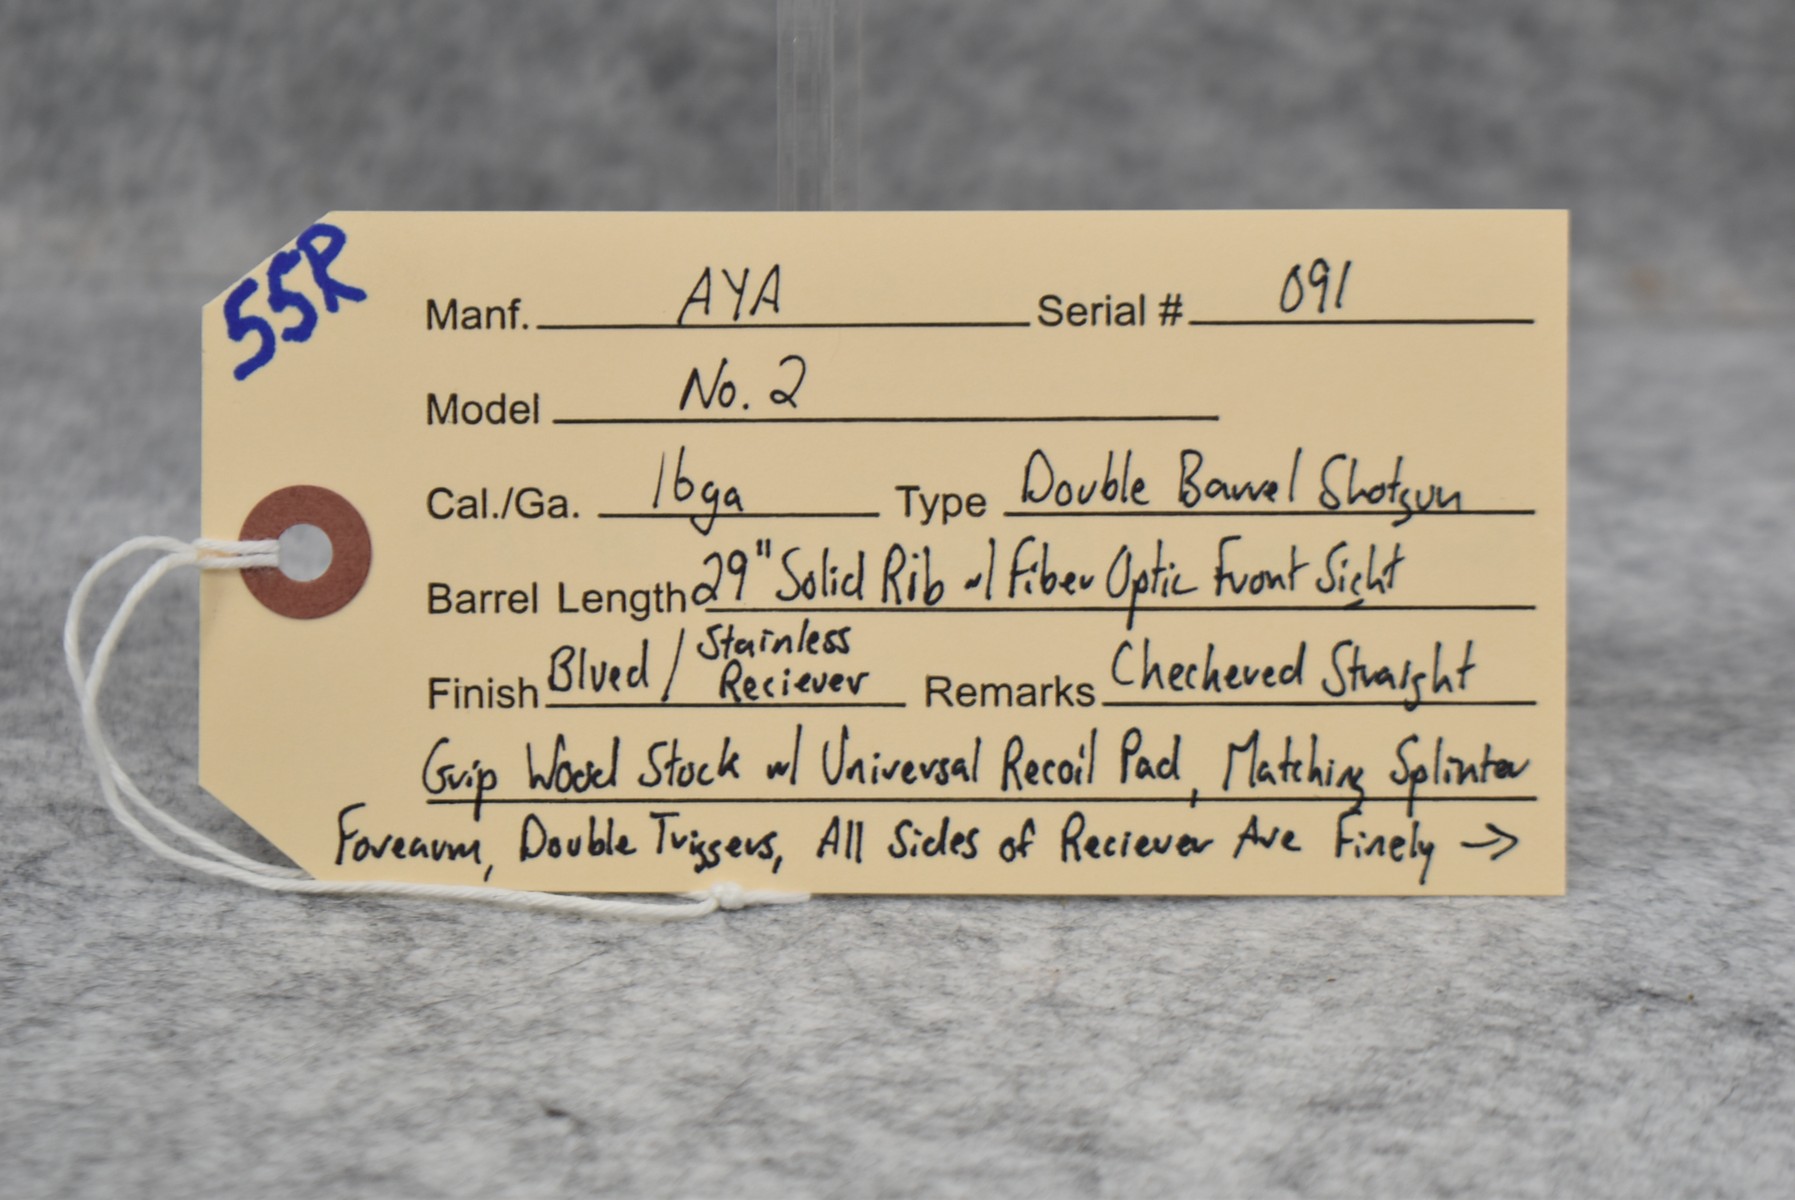 55R
Manf. AYA Serial # 091
Model No. 2
Cal./Ga. 16ga Type Double Barrel Shotgun
Barrel Length 29" Solid Rib w/ Fiber Optic Front Sight
Finish Blued / Stainless Reciever Remarks Checkered Straight
Grip Wood Stock w/ Universal Recoil Pad, Matching Splinter
Forearm, Double Triggers, All Sides of Reciever Are Finely →